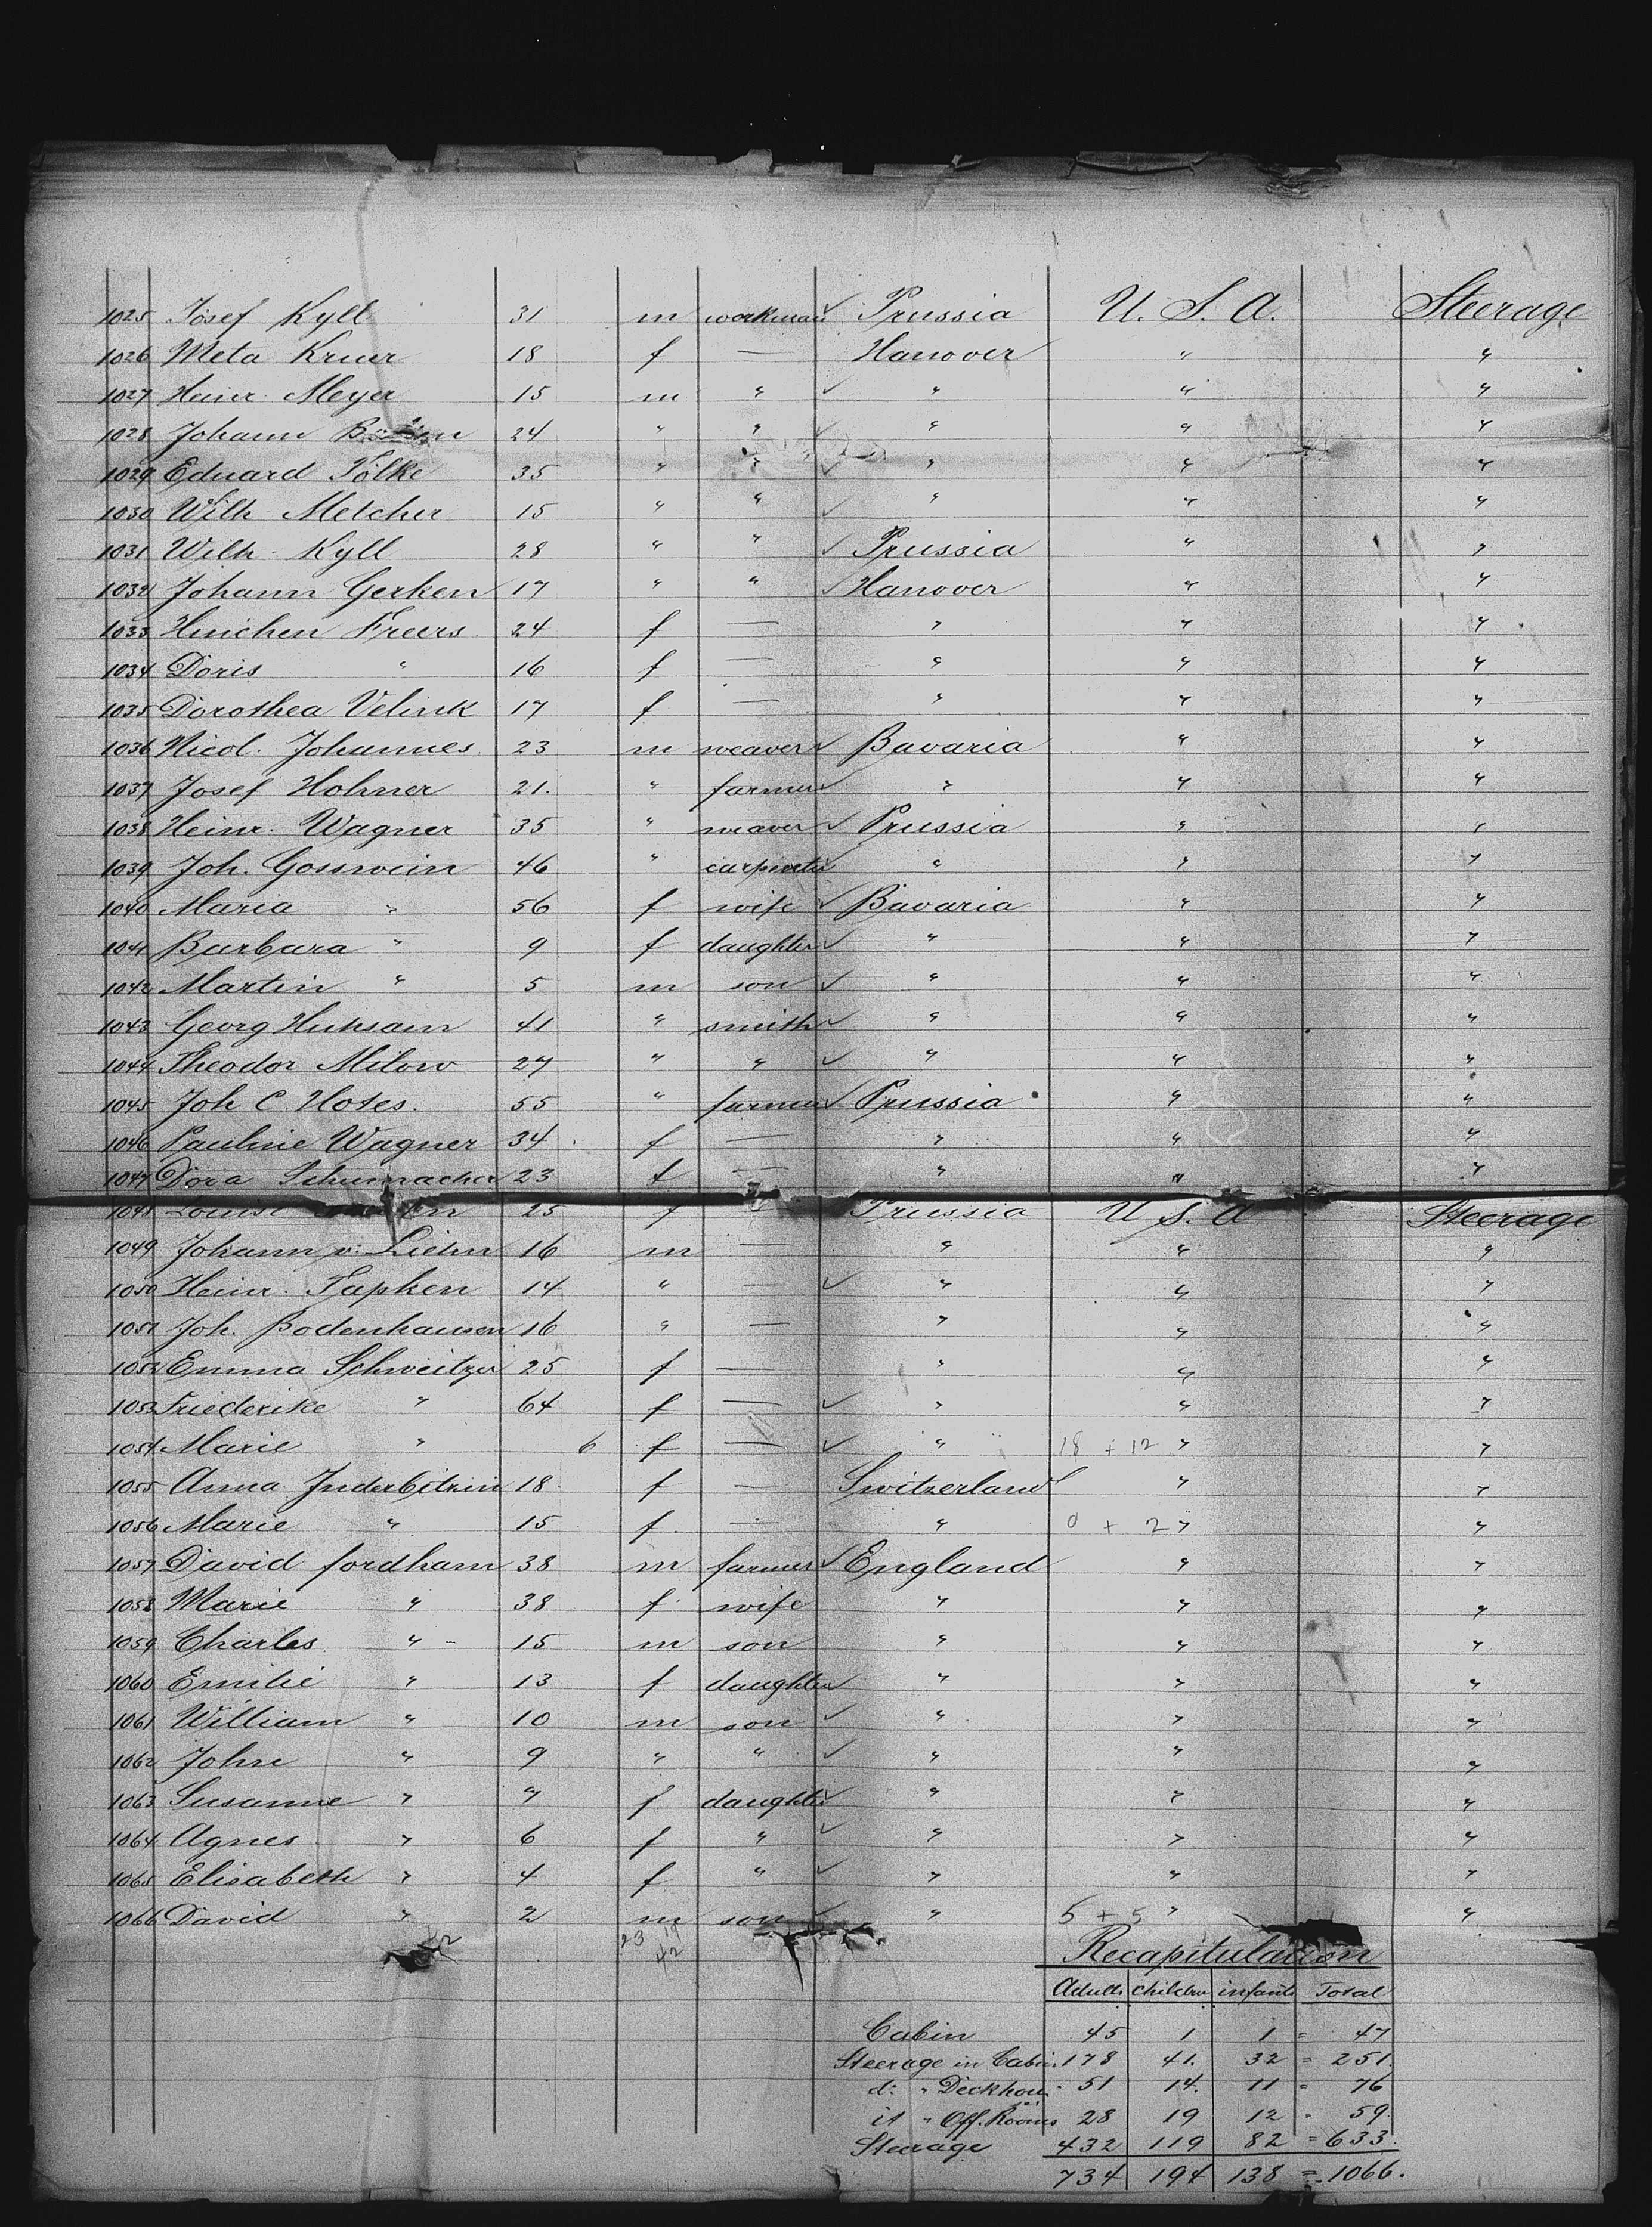 1025 Josef Kyll 31 m workman ✓ Prussia U. S. A. Steerage
1026 Meta Kruer 18 f — Hanover " "
1027 Heinr. Meyer 15 m " ✓ " " "
1028 Johann 24 " " ✓ " " "
1029 Eduard Tölke 35 " " ✓ " " "
1030 Wilh. Metcher 15 " " ✓ " " "
1031 Wilh. Kyll 28 " " ✓ Prussia " "
1032 Johann Gerken 17 " " ✓ Hanover " "
1033 Hinichen Freers 24 f — " " "
1034 Doris " 16 f — " " "
1035 Dorothea Velink 17 f — " " "
1036 Nicol. Johannes 23 m weaver ✓ Bavaria " "
1037 Josef Hohner 21. " farmer ✓ " " "
1038 Heinr. Wagner 35 " weaver ✓ Prussia " "
1039 Joh. Gosswein 46 " carpenter ✓ " " "
1040 Maria " 56 f wife ✓ Bavaria " "
1041 Barbara " 9 f daughter ✓ " " "
1042 Martin " 5 m son ✓ " " "
1043 Georg Huhsam 41 " smith ✓ " " "
1044 Theodor Milow 27 " " ✓ " " "
1045 Joh C. Hotes. 55 " farmer ✓ Prussia " "
1046 Pauline Wagner 34 f — " " "
1047 Dora Schumacher 23 f — " " "
1048 Louise 25 f Prussia U. S. A Steerage
1049 Johann v. Liehn 16 m — " " "
1050 Heinr. Tapken 14 " — ✓ " " "
1051 Joh. Bodenhausen 16 " — " " "
1052 Emma Schweitzer 25 f — " " "
1053 Friederike " 64 f — ✓ " " "
1054 Marie " 6 f — ✓ " 18 + 12 " "
1055 Anna Inderbitzin 18 f — Switzerland " "
1056 Marie " 15 f. — " 0 + 2 " "
1057 David fordham 38 m farmer ✓ England " "
1058 Marie " 38 f wife " " "
1059 Charles " 15 m son " " "
1060 Emilie " 13 f daughter " " "
1061 William " 10 m son ✓ " " "
1062 John " 9 " " ✓ " " "
1063 Susanne " 7 f daughter ✓ " " "
1064 Agnes " 6 f " ✓ " " "
1065 Elisabeth " 4 f " ✓ " " "
1066 David " 2 m son ✓ " 5 + 5 " "
23 19
42
Recapitulation
Adults children infants Total
Cabin 45 1 1 = 47
Steerage in Cabin 178 41. 32 = 251.
d: " Deckhou 51 14. 11 = 76
it " Off. Rooms 28 19 12 " 59.
Steerage 432 119 82 = 633.
734 194 138 = 1066.